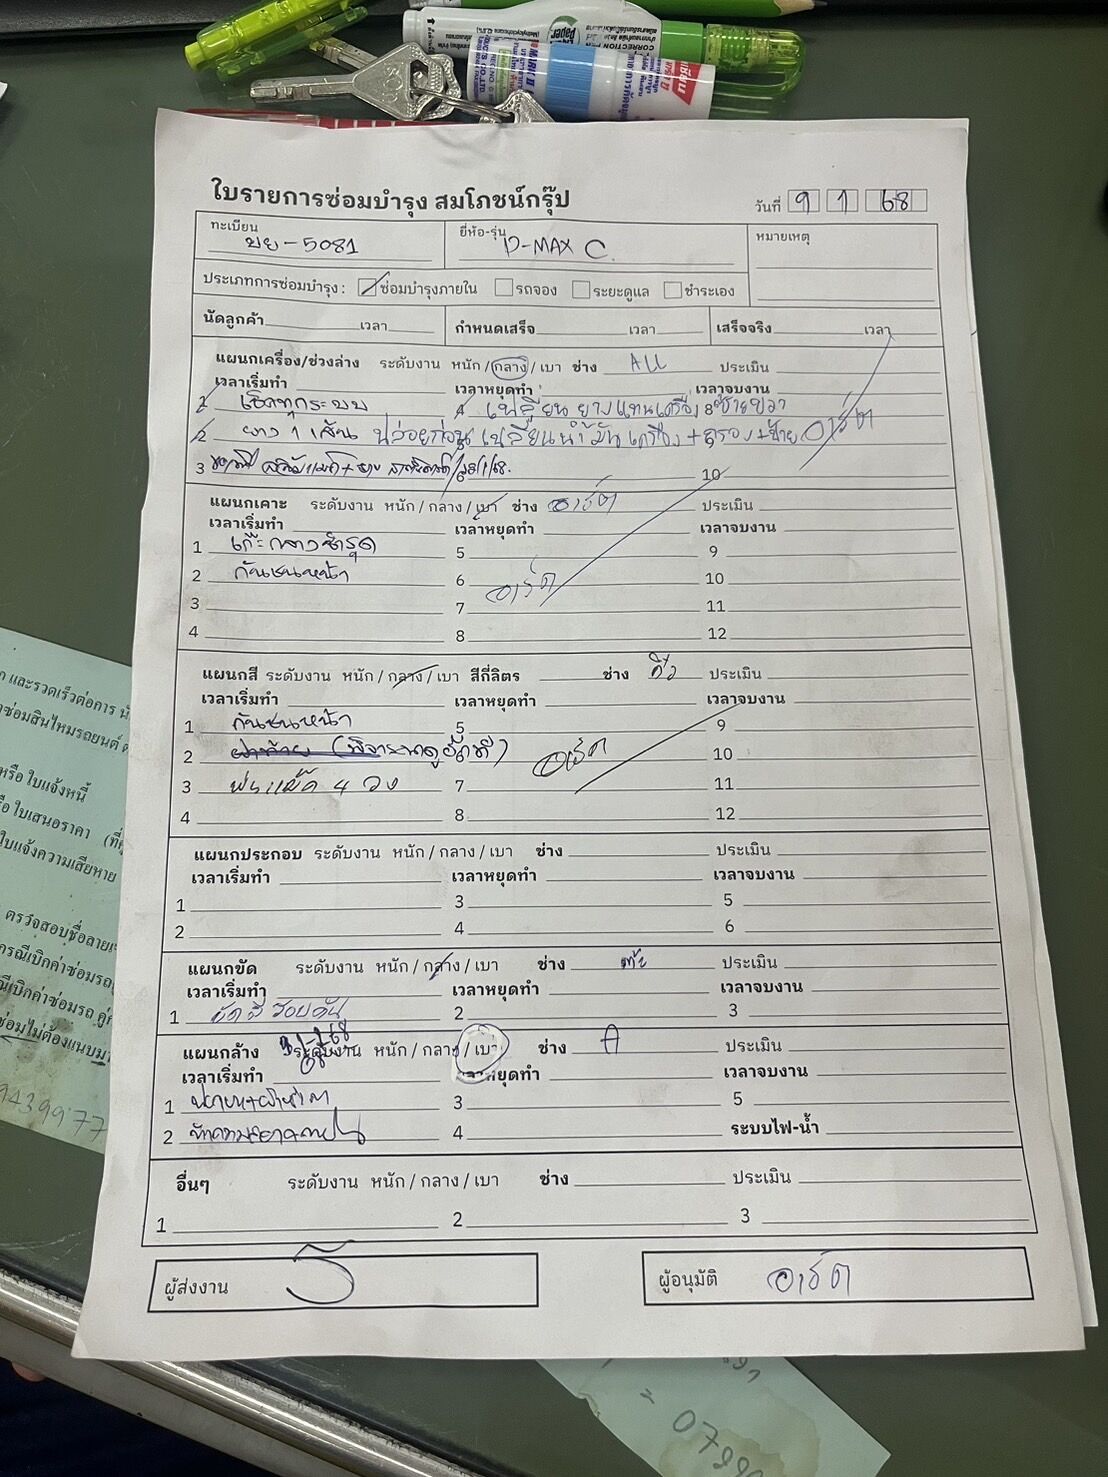 CORRECTION PEN
ใบรายการซ่อมบำรุง สมโภชน์กรุ๊ป
วันที่ 9 1 68
ทะเบียน ยี่ห้อ-รุ่น หมายเหตุ
ขย-5081 D-MAX C.
ประเภทการซ่อมบำรุง : ซ่อมบำรุงภายใน รถจอง ระยะดูแล ชำระเอง
นัดลูกค้า เวลา กำหนดเสร็จ เวลา เสร็จจริง เวลา
แผนกเครื่อง/ช่วงล่าง ระดับงาน หนัก / กลาง / เบา ช่าง ALL ประเมิน
เวลาเริ่มทำ เวลาหยุดทำ เวลาจบงาน
1 เช็คทุกระบบ 4 เปลี่ยนยางแท่นเครื่อง 8 ซ้ายขวา
2 ยาง 1 เส้น ปล่อยก่อน เปลี่ยนน้ำมันเครื่อง+กรอง+ป้าย อาร์ต
3 6 10
แผนกเคาะ ระดับงาน หนัก / กลาง / เบา ช่าง อาร์ต ประเมิน
เวลาเริ่มทำ เวลาหยุดทำ เวลาจบงาน
1 เก๊ะกลางชำรุด 5 9
2 กันชนหน้า 6 อาร์ต 10
3 7 11
4 8 12
แผนกสี ระดับงาน หนัก / กลาง / เบา สีกี่ลิตร ช่าง คิว ประเมิน
เวลาเริ่มทำ เวลาหยุดทำ เวลาจบงาน
1 กันชนหน้า 5 9
2 (พิจารณาดูอีกที) อาร์ต 10
3 พ่นแม็ค 4 วง 7 11
4 8 12
แผนกประกอบ ระดับงาน หนัก / กลาง / เบา ช่าง ประเมิน
เวลาเริ่มทำ เวลาหยุดทำ เวลาจบงาน
1 3 5
2 4 6
แผนกขัด ระดับงาน หนัก / กลาง / เบา ช่าง ประเมิน
เวลาเริ่มทำ เวลาหยุดทำ เวลาจบงาน
1 ขัดสีรอบคัน 2 3
แผนกล้าง ระดับงาน หนัก / กลาง / เบา ช่าง A ประเมิน
เวลาเริ่มทำ เวลาหยุดทำ เวลาจบงาน
1 3 5
2 4 ระบบไฟ-น้ำ
อื่นๆ ระดับงาน หนัก / กลาง / เบา ช่าง ประเมิน
1 2 3
ผู้ส่งงาน ผู้อนุมัติ อาร์ต
และรวดเร็วต่อการ
ซ่อมสินไหมรถยนต์
หรือ ใบแจ้งหนี้
ใบเสนอราคา
ใบแจ้งความเสียหาย
ตรวจสอบชื่อ
กรณีเบิกค่าซ่อมรถ
ซ่อมไม่ต้องแนบ
943997